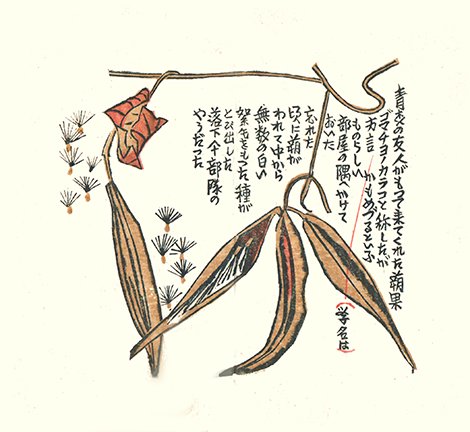 青森の友人がもつて来てくれた蒴果
ゴマチヨノカラコと称したが
方言
かもめづるといふ
ものらしい
(学名は
部屋の隅へかけて
おいた
忘れた
頃に蒴が
われて中から
無数の白い
絮毛をもつた種が
とび出した
落下傘部隊の
やうだつた